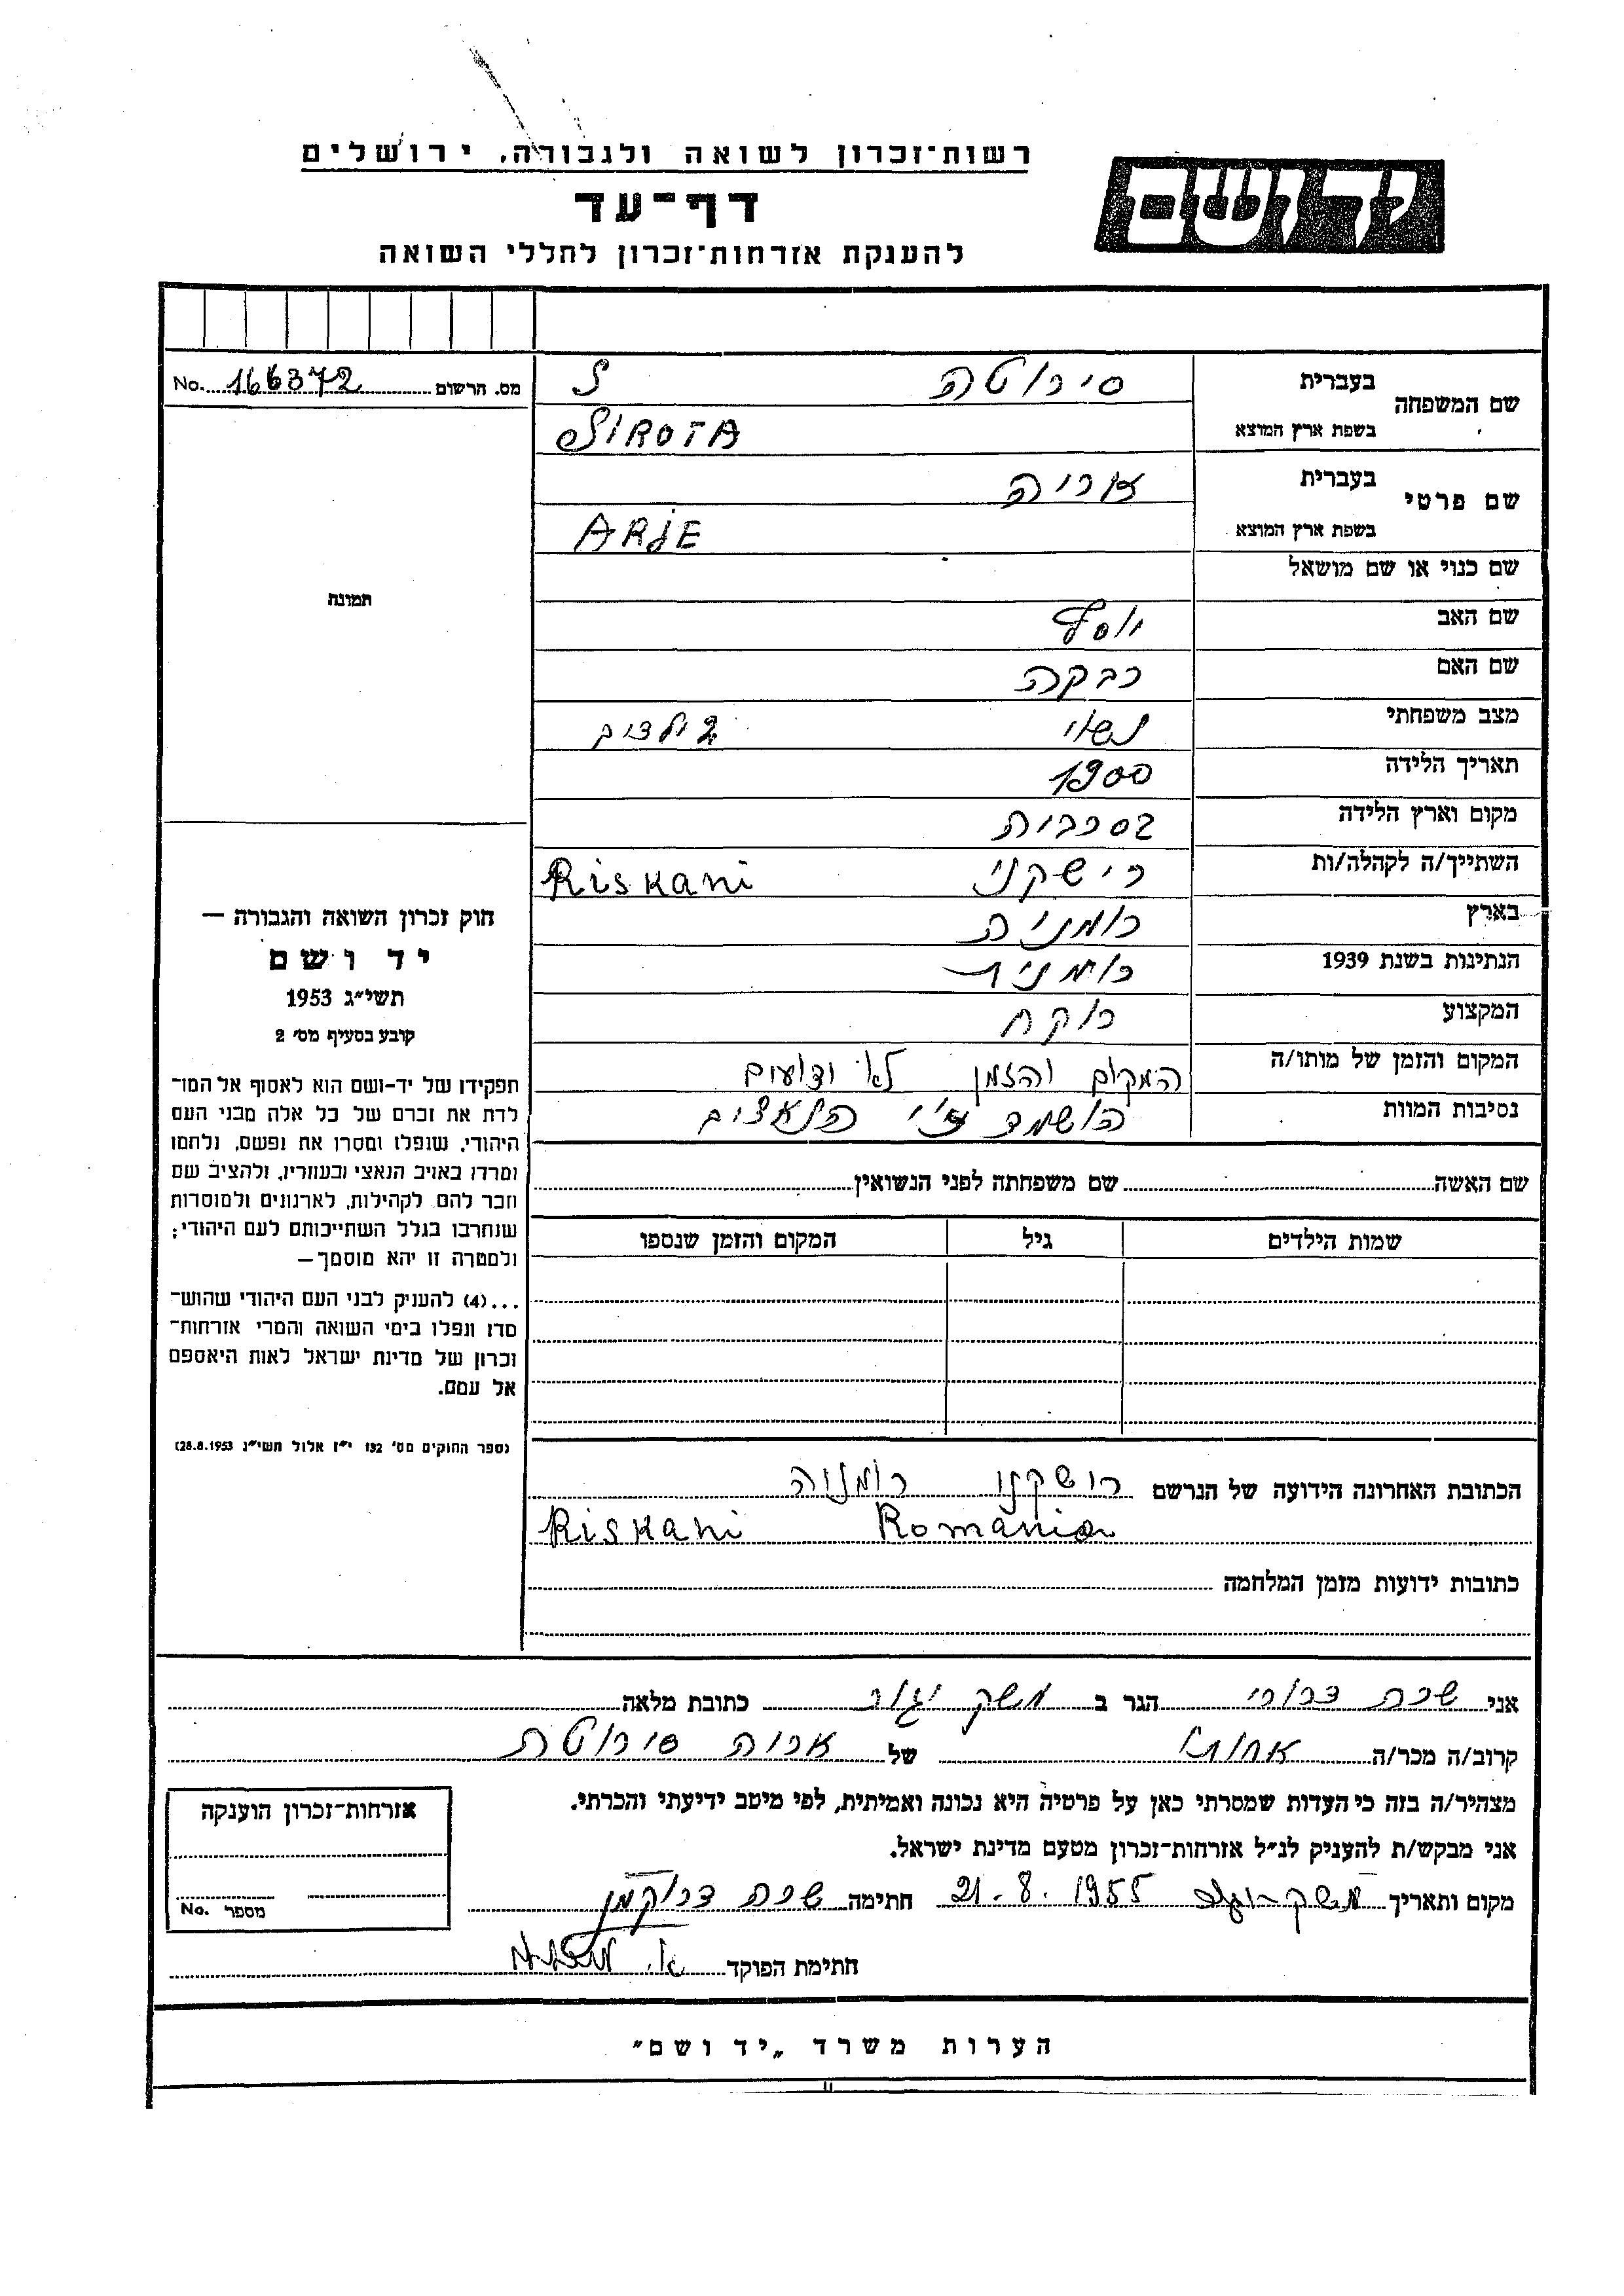 רשות־זכרון לשואה ולגבורה, ירושלים
יד ושם
דף־עד
להענקת אזרחות־זכרון לחללי השואה
מס. הרשום 166372 No.
תמונה
חוק זכרון השואה והגבורה —
יד ושם
תשי״ג 1953
קובע בסעיף מס׳ 2
תפקידו של יד-ושם הוא לאסוף אל המו־
לדת את זכרם של כל אלה מבני העם
היהודי, שנפלו ומסרו את נפשם, נלחמו
ומרדו באויב הנאצי ובעוזריו, ולהציב שם
וזכר להם לקהילות, לארגונים ולמוסדות
שנחרבו בגלל השתייכותם לעם היהודי;
ולמטרה זו יהא מוסמך—
...(4) להעניק לבני העם היהודי שהוש־
מדו ונפלו בימי השואה והמרי אזרחות־
זכרון של מדינת ישראל לאות היאספם
אל עמם.
(ספר החוקים מס׳ 132 י״ז אלול תשי״ג 28.8.1953)
שם המשפחה בעברית סירוטה
בשפת ארץ המוצא SIROTA
שם פרטי בעברית אריה
בשפת ארץ המוצא ARJE
שם כנוי או שם מושאל
שם האב יוסף
שם האם רבקה
מצב משפחתי נשוי 2 ילדים
תאריך הלידה 1900
מקום וארץ הלידה בסרביה
השתייך/ה לקהלה/ות רישקני Riskani
בארץ רומניה
הנתינות בשנת 1939 רומנית
המקצוע רוקח
המקום והזמן של מותו/ה המקום והזמן לא ידועים
נסיבות המוות הושמד ע״י הנאצים
שם האשה שם משפחתה לפני הנשואין
שמות הילדים גיל המקום והזמן שנספו
הכתובת האחרונה הידועה של הנרשם רישקני רומניה
Riskani Romania
כתובות ידועות מזמן המלחמה
אני שרה דרורי הגר ב משק יגור כתובת מלאה
קרוב/ה מכר/ה אחותו של אריה סירוטה
מצהיר/ה בזה כי העדות שמסרתי כאן על פרטיה היא נכונה ואמיתית, לפי מיטב ידיעתי והכרתי.
אני מבקש/ת להעניק לנ״ל אזרחות־זכרון מטעם מדינת ישראל.
מקום ותאריך משק-יגור 21.8.1955 חתימה שרה
חתימת הפוקד
אזרחות־זכרון הוענקה
מספר No.
הערות משרד „יד ושם״